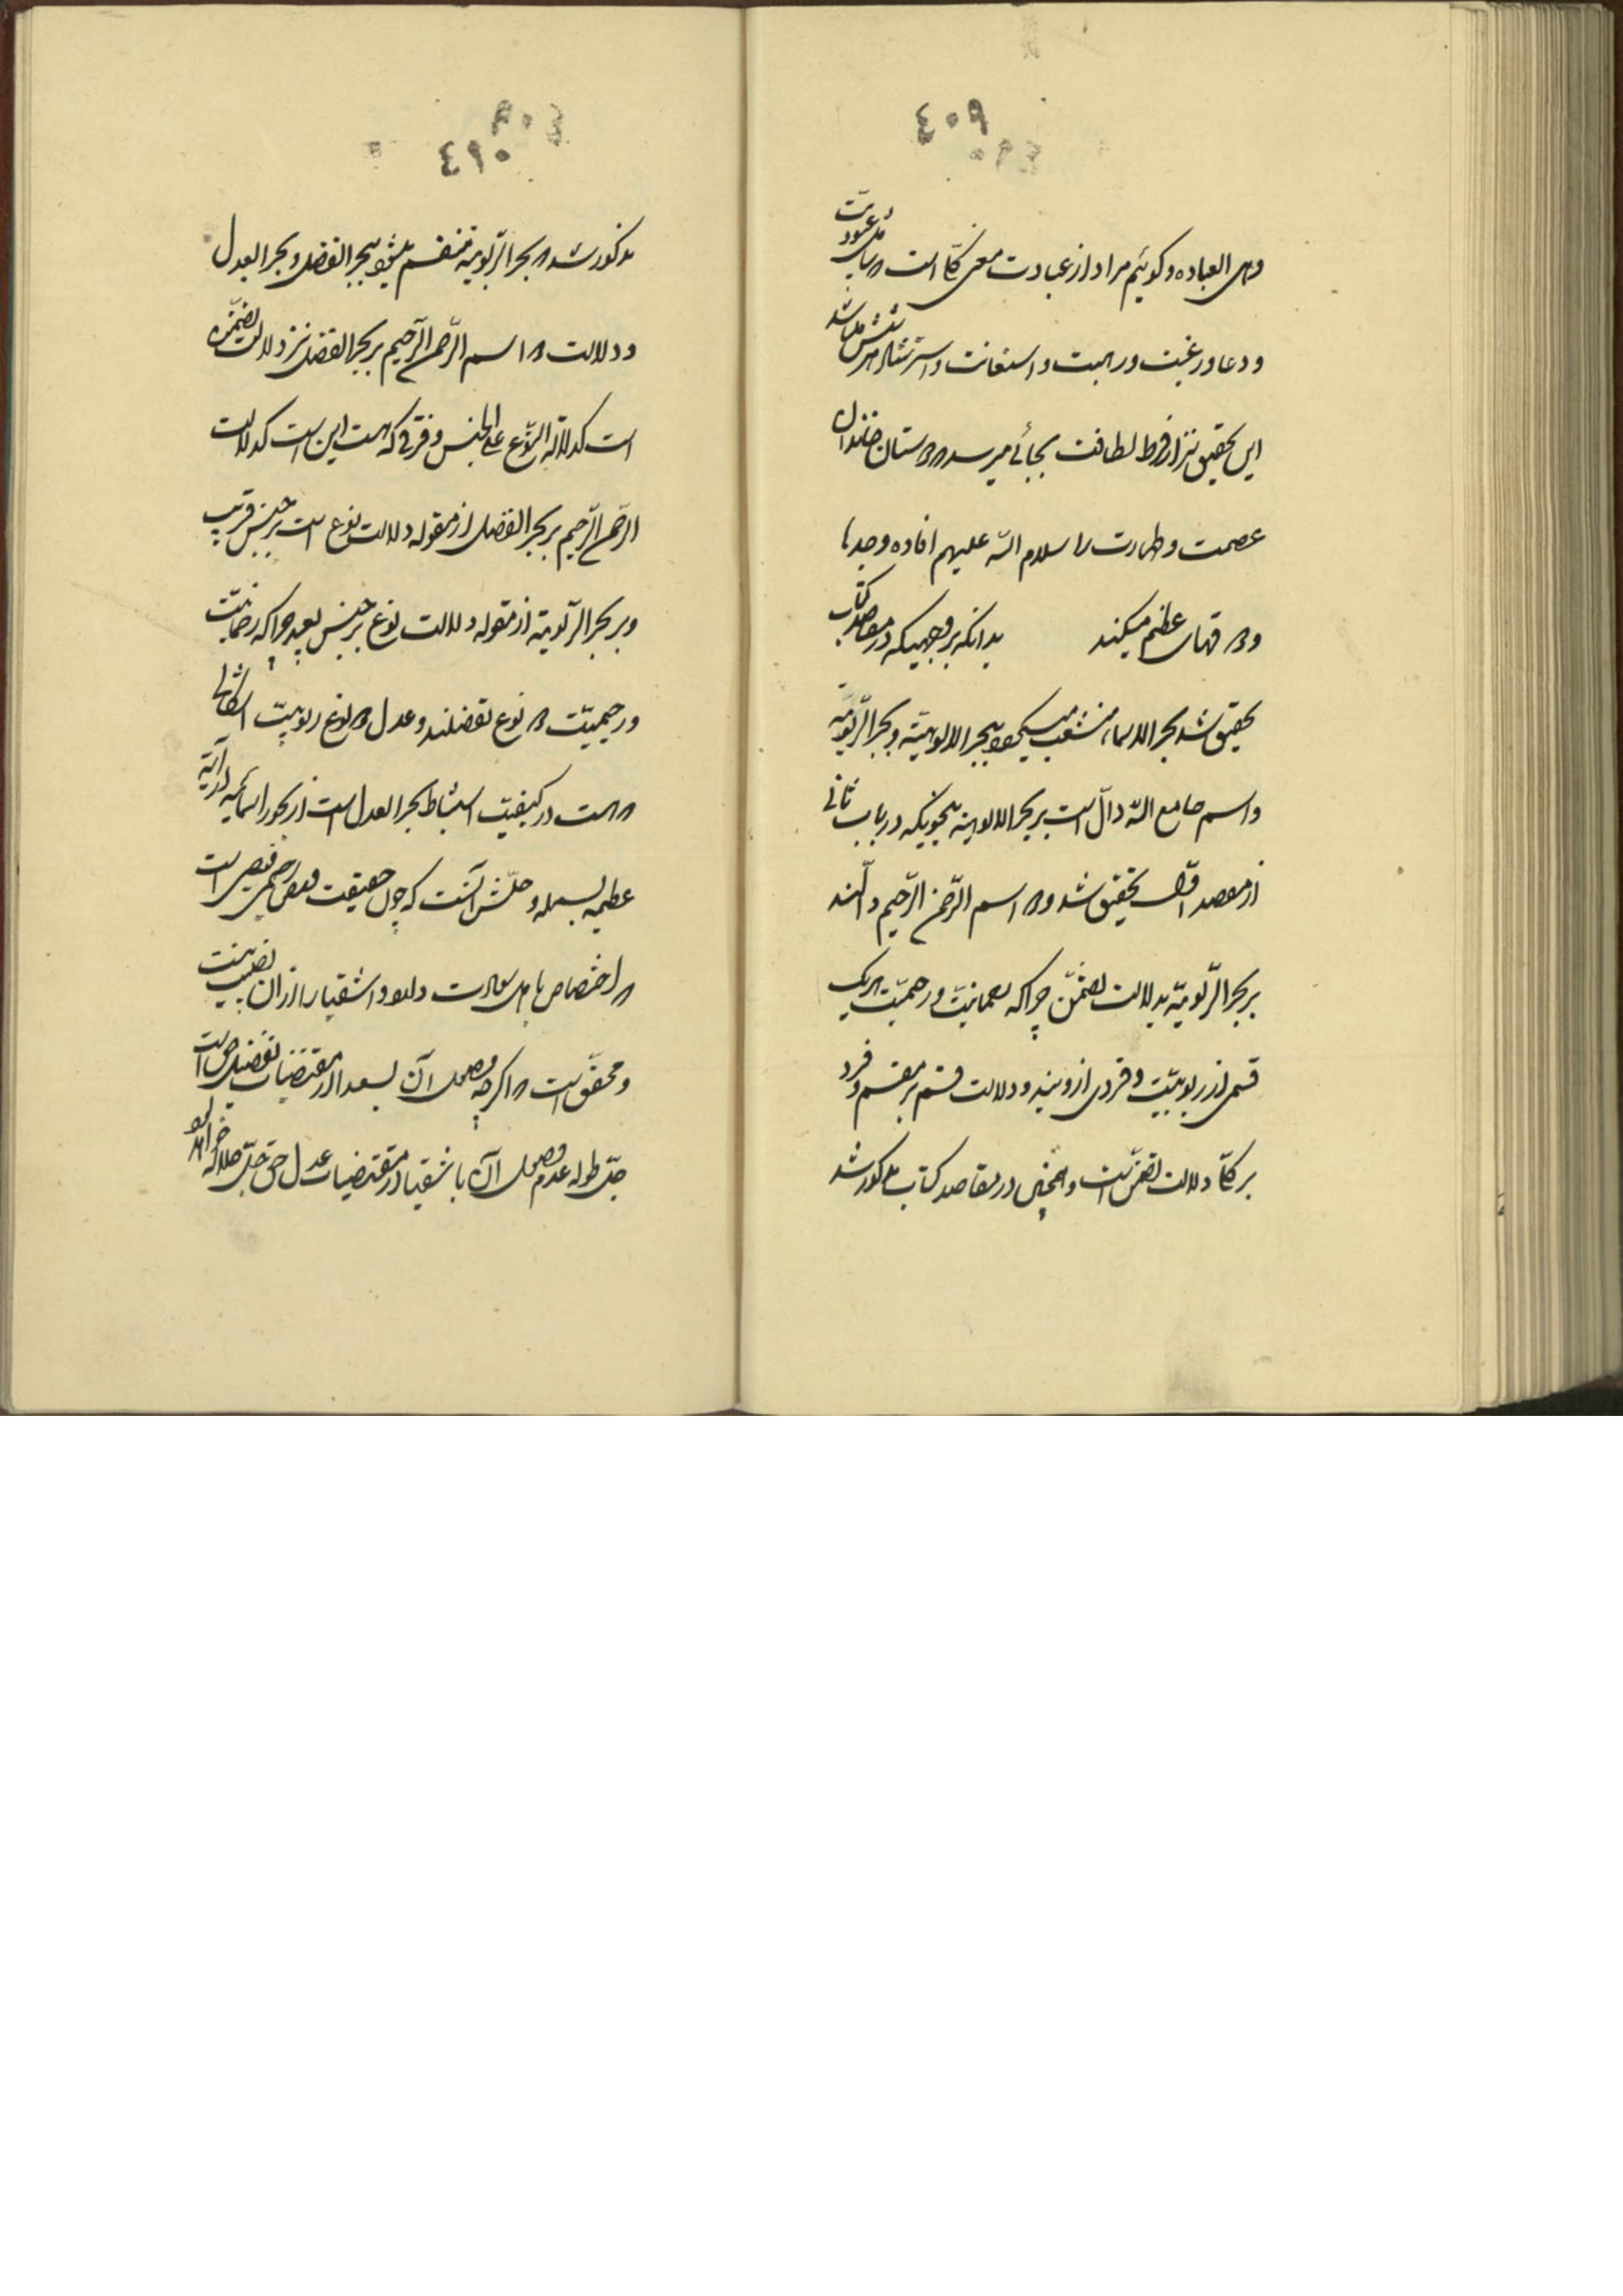 ٤٠٩
وهی العباده و کوئیم مراد از عبادت معنی کلّی است که بر عبودیّت
و دعا و رغبت و رهبت و استعانت و
این تحقیق نیز از فرط لطافت بجائی میرسد که دوستان خاندان
عصمت و طهارت را سلام الله علیهم افاده وجدها
و فهمای عظیم میکند بدانکه بر وجهیکه در مقاصد کتاب
تحقیق شد بحر الاسماء منشعب میشود ببحر الالوهیّة و بحر الرّبوبیّة
و اسم جامع الله دالّ است بر بحر الالوهیّة بنحویکه در باب ثانی
از مقصد اوّل تحقیق شد و دو اسم الرّحمن الرّحیم دالّند
بر بحر الرّبوبیّة بدلالت تضمّن چرا که رحمانیّت و رحیمیّت هر یک
قسمی از ربوبیّت و فردی از ویند و دلالت قسم بر مقسم و فرد
بر کلّی دلالت تضمّن است و همچنین در مقاصد کتاب مذکور شد
٤١٠
مذکور شد که بحر الرّبوبیّة منقسم میشود ببحر الفضل و بحر العدل
و دلالت دو اسم الرّحمن الرّحیم بر بحر الفضل نیز دلالت تضمّن
است کدلالة النّوع علی الجنس و فرقی که هست این است که دلالت
الرّحمن الرّحیم بر بحر الفضل از مقوله دلالت نوع است بر جنس قریب
و بر بحر الرّبوبیّة از مقوله دلالت نوع بر جنس بعید چرا که رحمانیّت
و رحیمیّت دو نوع تفضلند و عدل دو نوع ربوبیّت اشکالی
که هست در کیفیّت استنباط بحر العدل است از بحور اسمائیه در آیه
عظیمه بسمله و حلّش آنست که چون حقیقت فیض رحیمی فیضی است
که اختصاص باهل سعادت دارد و اشقیا را از آن نصیب نیست
و محقّق است که اگر چه وصول آن بسعدا از مقتضیات تفضّل حق است
جلّ طوله عدم وصول آن باشقیا از مقتضیات عدل حق جلّ جلاله
خواهد بود